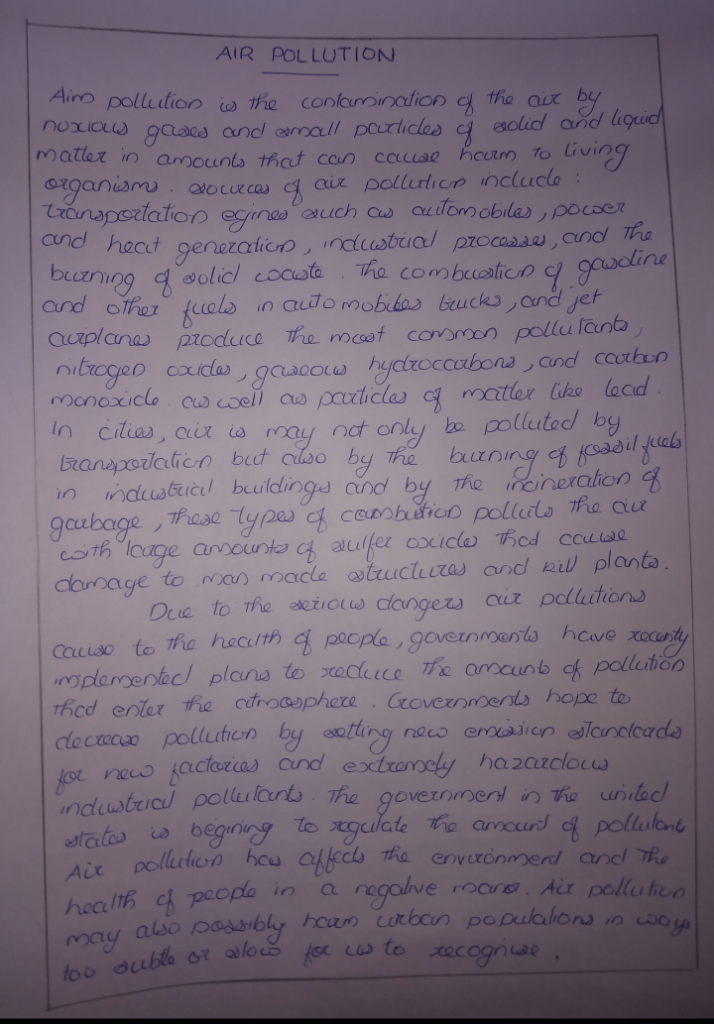 AIR POLLUTION
Aim pollution is the contamination of the air by
noxious gases and small particles of solid and liquid
matter in amounts that can cause harm to living
organisms. sources of air pollution include :
transportation egines such as automobiles, power
and heat generation, industrial processes, and the
burning of solid waste. The combustion of gasoline
and other fuels in automobiles trucks, and jet
airplanes produce the most common pollutants,
nitrogen oxides, gaseous hydrocarbons, and carbon
monoxide. as well as particles of matter like lead.
In cities, air is may not only be polluted by
transportation but also by the burning of fossil fuels
in industrial buildings and by the incineration of
garbage, these types of combustion pollute the air
with large amounts of sulfer oxides that cause
damage to man made structures and kill plants.
Due to the serious dangers air pollutions
cause to the health of people, governments have recently
implemented plans to reduce the amounts of pollution
that enter the atmosphere. Governments hope to
decrease pollution by setting new emission standards
for new factories and extremely hazardous
industrial pollutants. The government in the united
states is begining to regulate the amount of pollutant
Air pollution how affects the environment and the
health of people in a negative maner. Air pollution
may also possibly harm urban populations in ways
too subtle or slow for us to recognise.